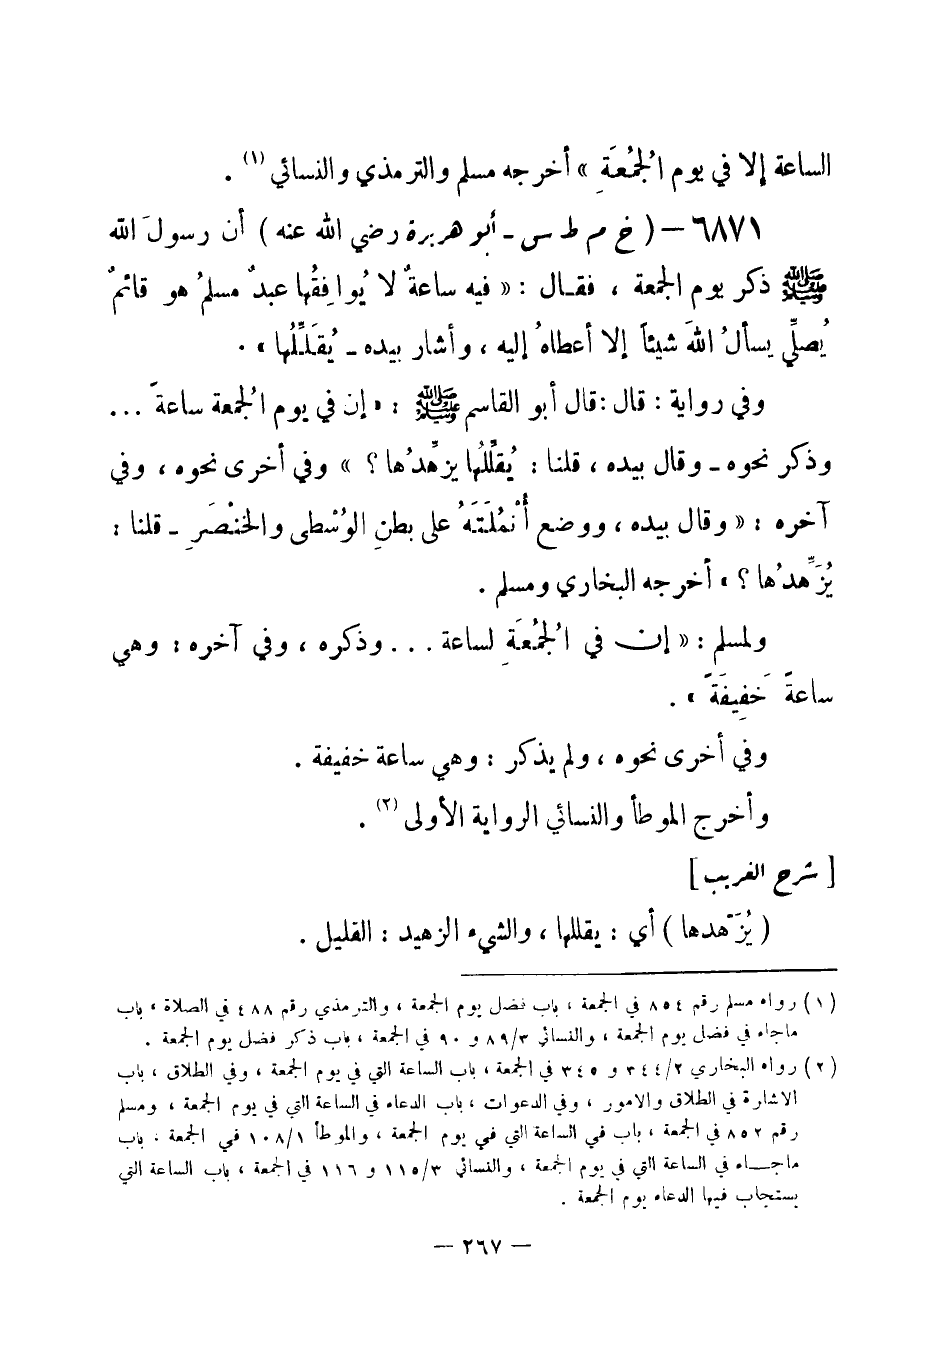 الساعة إلا في يوم الجُمُعَةِ » أخرجه مسلم والترمذي والنسائي (١) .
٦٨٧١ – ( خ م ط س ـ أبو هريرة رضي الله عنه ) أن رسولَ الله
ﷺ ذكر يوم الجمعة ، فقال : « فيه ساعةٌ لا يُوافِقُها عبدٌ مسلمٌ هو قائمٌ
يُصلِّي يسألُ اللهَ شيئاً إلا أعطاهُ إليه ، وأشار بيده ـ يُقَلِّلُها » .
وفي رواية : قال : قال أبو القاسم ﷺ : « إن في يوم الجمعة ساعةً ...
وذكر نحوه ـ وقال بيده ، قلنا : يُقلِّلُها يزهِّدُها ؟ » وفي أخرى نحوه ، وفي
آخره : « وقال بيده ، ووضع أُنْمُلَتَهُ على بطنِ الوُسْطى والخِنْصَرِ ـ قلنا :
يُزَهِّدُها ؟ » أخرجه البخاري ومسلم .
ولمسلم : « إن في الجُمُعَةِ لساعة ... وذكره ، وفي آخره : وهي
ساعةً خَفِيفَةً » .
وفي أخرى نحوه ، ولم يذكر : وهي ساعة خفيفة .
وأخرج الموطأ والنسائي الرواية الأولى (٢) .
[ شرح الغريب ]
( يُزَهِّدها ) أي : يقللها ، والشيء الزهيد : القليل .
(١) رواه مسلم رقم ٨٥٤ في الجمعة ، باب فضل يوم الجمعة ، والترمذي رقم ٤٨٨ في الصلاة ، باب
ماجاء في فضل يوم الجمعة ، والنسائي ٨٩/٣ و ٩٠ في الجمعة ، باب ذكر فضل يوم الجمعة .
(٢) رواه البخاري ٣٤٤/٢ و ٣٤٥ في الجمعة ، باب الساعة التي في يوم الجمعة ، وفي الطلاق ، باب
الاشارة في الطلاق والامور ، وفي الدعوات ، باب الدعاء في الساعة التي في يوم الجمعة ، ومسلم
رقم ٨٥٢ في الجمعة ، باب في الساعة التي في يوم الجمعة ، والموطأ ١٠٨/١ في الجمعة ، باب
ماجاء في الساعة التي في يوم الجمعة ، والنسائي ١١٥/٣ و ١١٦ في الجمعة ، باب الساعة التي
يستجاب فيها الدعاء يوم الجمعة .
– ٢٦٧ –